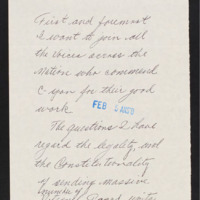 First and foremost
I want to join all
the voices across the
Nation who commend
C-span for their good
work.
FEB
The questions I have
regard the legality and
the Constitutionality
of sending massive